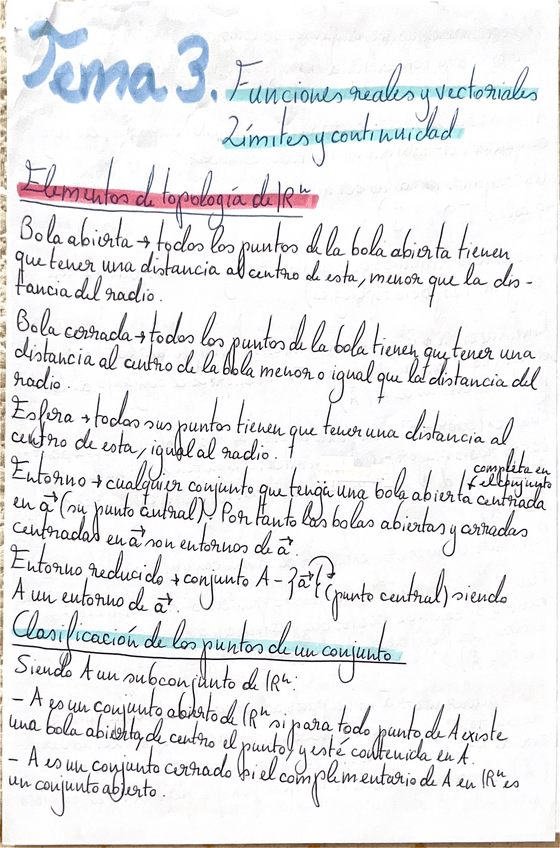 Tema 3. Funciones reales y vectoriales
Límites y continuidad
Elementos de topología de ℝⁿ
Bola abierta → todos los puntos de la bola abierta tienen
que tener una distancia al centro de esta, menor que la dis-
tancia del radio.
Bola cerrada → todos los puntos de la bola tienen que tener una
distancia al centro de la bola menor o igual que la distancia del
radio.
Esfera → todos sus puntos tienen que tener una distancia al
centro de esta, igual al radio.
completa en
el conjunto
Entorno → cualquier conjunto que tenga una bola abierta centrada
en a⃗ (su punto central). Por tanto las bolas abiertas y cerradas
centradas en a⃗ son entornos de a⃗.
Entorno reducido → conjunto A - {a⃗} (punto central) siendo
A un entorno de a⃗.
Clasificación de los puntos de un conjunto
Siendo A un subconjunto de ℝⁿ:
- A es un conjunto abierto de ℝⁿ si para todo punto de A existe
una bola abierta, de centro el punto, y esté contenida en A.
- A es un conjunto cerrado si el complementario de A en ℝⁿ es
un conjunto abierto.